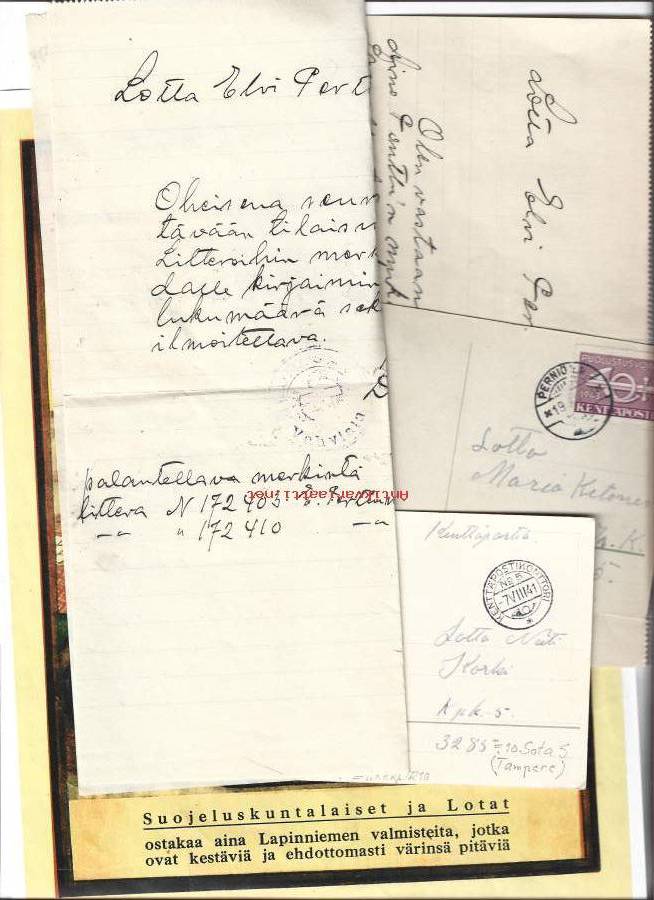 Lotta Elvi Pert
Oheisena seu
tävään tilaisu
Litteroihin mer
dalle kirjaimin
lukumäärä se
ilmoitettava.
palautettava merkintä
littera N 172405 E. Perttu
-"- " 172410 -"-
Antikvariaatti.net
Lotta Elvi Per
Olen vastaan
Aino Pentti'n
PERNIÖ
PUOLUSTUS
1943
KENTTÄPOSTI
Lotta
Maria Ketonen
Kenttäpostia.
KENTTÄPOSTIKONTTORI
No 5
-7.VIII.41
Lotta
Korho
Kpk.-5.
3285 = 10.Sota S
(Tampere)
Suojeluskuntalaiset ja Lotat
ostakaa aina Lapinniemen valmisteita, jotka
ovat kestäviä ja ehdottomasti värinsä pitäviä